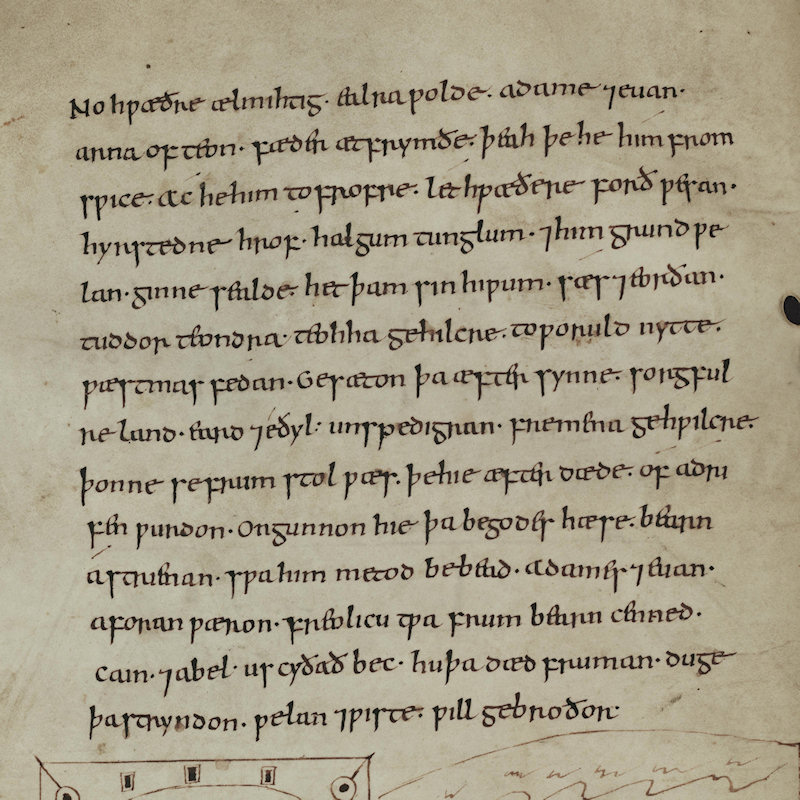 No hƿæðre ælmihtig. ealra ƿolde. adame ⁊euan.
arna of teon. fæder ætfrymðe. þeah þe he him from
sƿice. ac hehim tofrofre. let hƿæðere forð ƿesan.
hyrstedne hrof. halgum tunglum. ⁊him grund ƿe
lan. ginne sealde. het þam sin hiƿum. sæs ⁊eorðan.
tuddor teondra. teohha gehilcre. toƿoruld nytte.
ƿæstmas fedan. Gesæton þa æfter synne. sorgful
re land. eard ⁊eðyl. unsƿedigran. fremena gehƿilcre.
þonne se frum stol ƿæs. þehie æfter dæde. of adri
fen ƿurdon. Ongunnon hie þa begodes hæse. bearn
astrienan. sƿa him metod bebead. adames ⁊euan.
aforan ƿæron. freolicu tƿa frum bearn cenned.
cain. ⁊abel. us cyðað bec. huþa dæd fruman. duge
þastryndon. ƿelan ⁊ƿiste. ƿill gebroðor